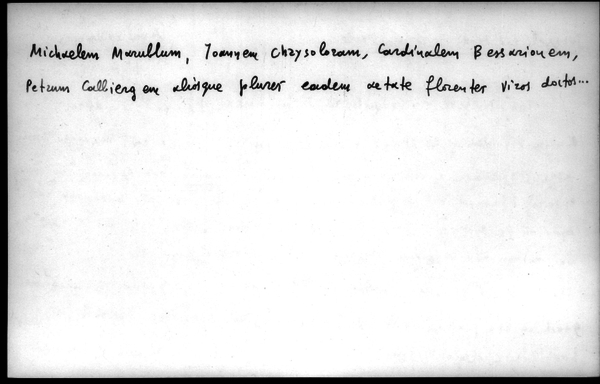 Michaelem Marullum, Joannem Chrysoloram, Cardinalem Bessarionem,
Petrum Calliergem aliosque plures eadem aetate florentes viros doctos...